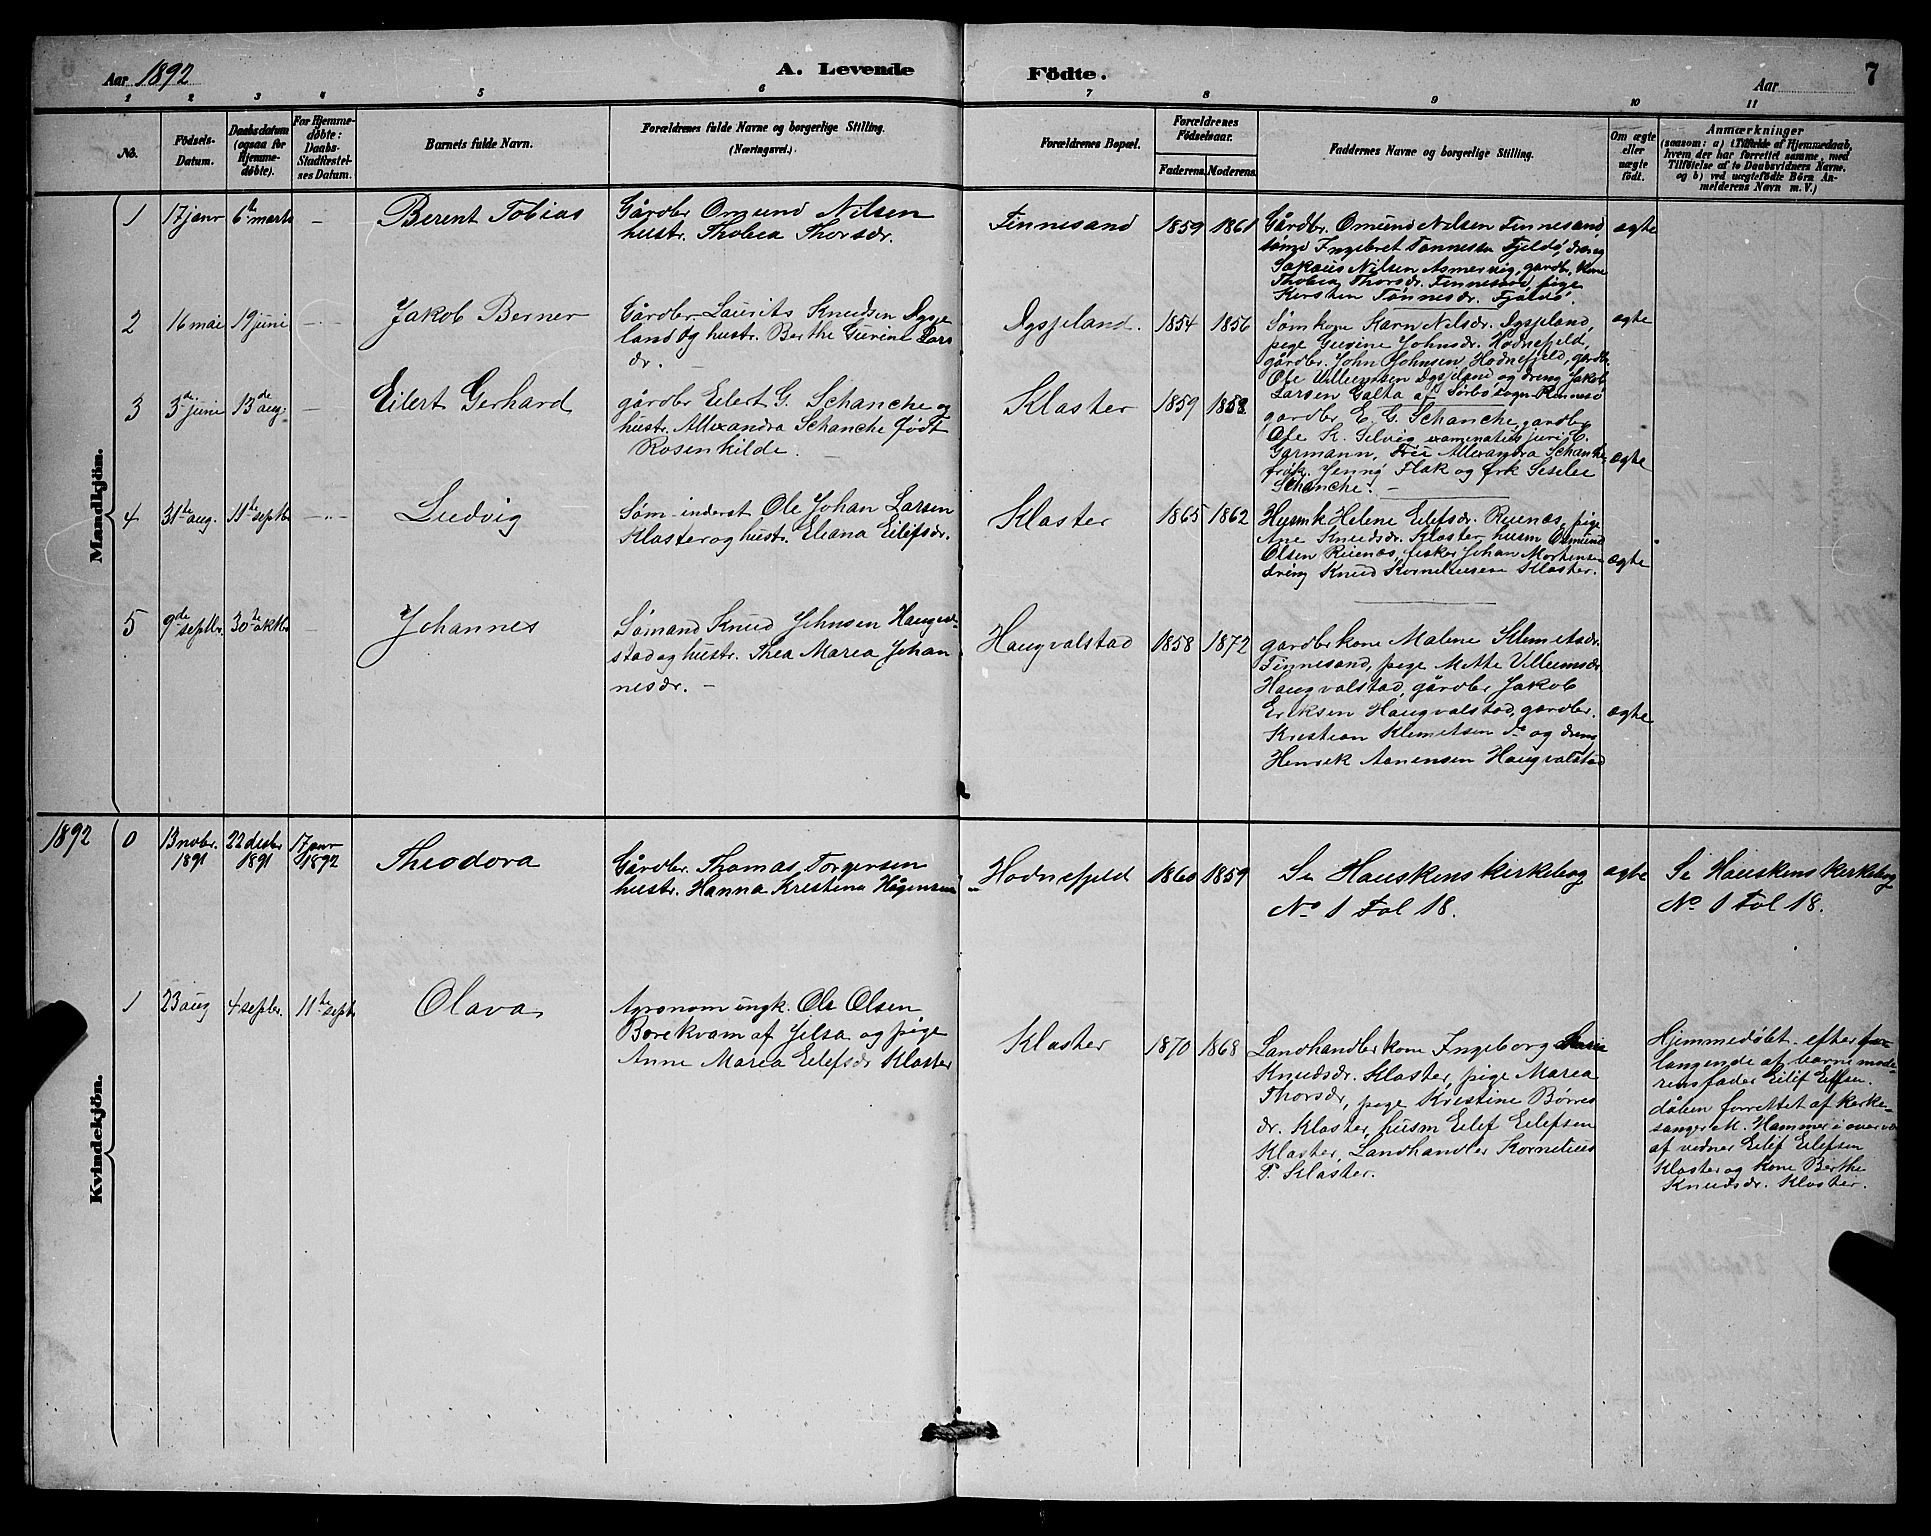 Aar 1892
A. Levende Födte.
Aar
7
1 2 3 4 5 6 7 8 9 10 11
No.
Födsels-
Datum.
Daabsdatum
(ogsaa for
Hjemme-
døbte).
For Hjemme-
døbte:
Daabs-
Stadfæstel-
ses Datum.
Barnets fulde Navn.
Forældrenes fulde Navne og borgerlige Stilling.
(Næringsvei.)
Forældrenes Bopæl.
Forældrenes
Fødselsaar.
Faderens. Moderens.
Faddernes Navne og borgerlige Stilling.
Om ægte
eller
uægte
født.
Anmærkninger
(saasom: a) i Tilfælde af Hjemmedaab,
hvem der har forrettet samme, med
Tilføielse af to Daabsvidners Navne.
og b) ved uægtefödte Börn An-
melderens Navn m. V.)
Mandkjön.
1 17 janr 6te marts - Berent Tobias
Gårdbr Omund Nilsen
hustr. Thobia Thorsdr.
Finnesand 1859 1861
Gårdbr. Omund Nilsen Finnesand
Ingebret Tønnesen Fjeldö, dreng
Nilsen Asmervig, gardbr. kone
Thobia Thorsdr. Finnesand, pige
Kersten Tönnesdr. Fjeldö.
ægte
2 16 mai 19 juni - Jakob Berner
Gårdbr. Laurits Knudsen Dysje
land og hustr. Berthe Gurine Lars
dr. -
Dysjeland. 1854 1856
Sömkone Karn Nilsdr. Dysjeland,
pige Gurine Johnsdr. Hodnefjeld,
gårdbr. John Johnsen Hodnefjeld, gardbr.
Ole Villumsen Dysjeland og dreng Jakob
Larsen Galta af Sörbö sogn Rennesö
ægte
3 3de juni 13de aug. - Eilert Gerhard
gårdbr Eilert G. Schanche og
hustr. Allexandra Schanche født
Rosenkilde.
Kloster 1859 1858
gardbr E. G. Schanche, gardbr
Ole K. Selvig examinatus juri C.
Garmann, Frue Allexandra Schanche
frök. Jenny Flak og frk Sesilie
Schanche. -
ægte
4 31te aug. 11te septbr - Ludvig
Söm. inderst Ole Johan Larsen
Kloster og hustr. Eliana Eilefsdr.
Kloster 1865 1862
Husmk Helene Eilefsdr. Reienæs, pige
Ane Knudsdr. Kloster husm Osmund
Olsen Reienæs, fisker Johan Mortensen
dreng Knud Korneliusen Kloster.
ægte
5 9de septbr. 30te oktbr - Johannes
Sömand Knud Johnsen Haugval-
stad og hustr. Thea Maria Johan
nesdr. -
Haugvalstad 1858 1872
gardbr kone Malene Klemetsdr.
Finnesand, pige Mette Villumsdr
Haugvalstad, gårdbr Jakob
Eriksen Haugvalstad, gardbr.
Kristian Klemetsen do og dreng
Henrik Aanensen Haugvalstad
ægte
Kvindekjön.
1892 0 13 nobr. 1891 22 desbr 1891 17 janr 1892 Theodora
Gårdbr. Thomas Torgersen
hustr. Hanna Kristina Hågensen
Hodnefjeld 1860 1859
Se Hauskens kirkebog
No 1 Fol 18.
ægte
Se Hauskens kirkebog
No 1 Fol 18.
1 23 aug 4 septbr. 11te septr Olava
Agronom ungk. Ole Olsen
Borekvam af Jelsa og pige
Anne Marea Eilefsdr Kloster
Kloster 1870 1868
Landhandler kone Ingeborg Maria
Knudsdr. Kloster, pige Marea
Thorsdr, pige Kristine Børres
dr. Kloster, husm Eilef Eilefsen
Kloster, Landhandler Kornelius
T. Kloster.
Hjemmedøbt efter for
langende af barnemode-
rens fader Eilif Eilfsen.
dåben forrettet af kirke-
sanger M. Hammer i overvær
af vidner Eilif Eilefsen
Kloster og kone Berthe
Knudsdr. Kloster.